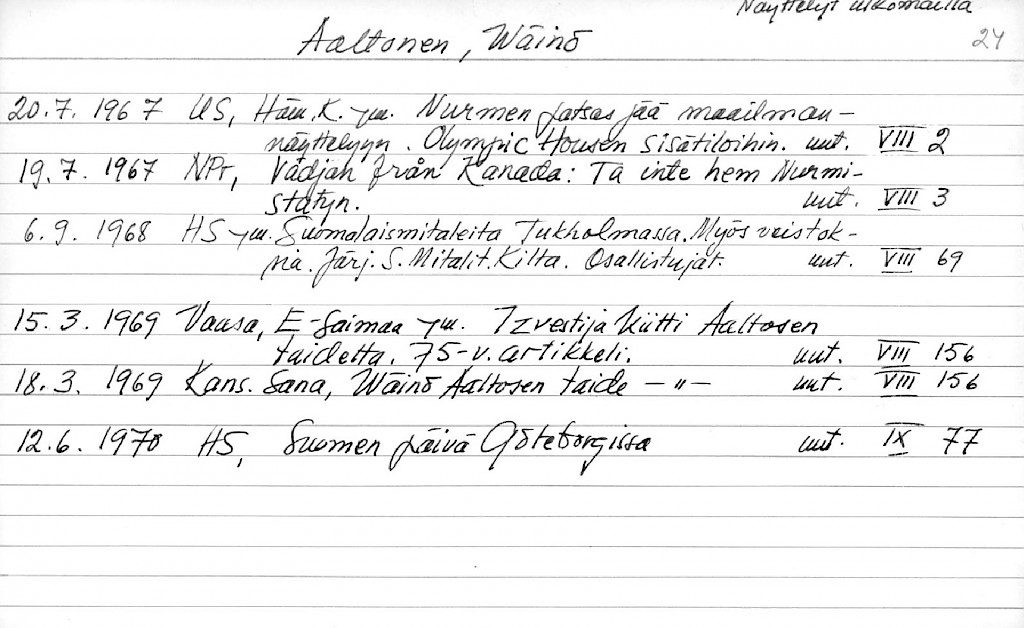 Näyttelyt ulkomailla
Aaltonen, Wäinö 24
20.7. 1967 US, Häm. K. ym. Nurmen patsas jää maailman-
näyttelyyn. Olympic Housen sisätiloihin. uut. VIII 2
19.7. 1967 NPr, Vädjan från Kanada: Ta inte hem Nurmi-
statyn. uut. VIII 3
6.9. 1968 HS ym. Suomalaismitaleita Tukholmassa. Myös veistok-
sia. Järj. S. Mitalit. Kilta. Osallistujat. uut. VIII 69
15.3. 1969 Vaasa, E-Saimaa ym. Izvestija kiitti Aaltosen
taidetta. 75-v. artikkeli. uut. VIII 156
18.3. 1969 Kans. Sana, Wäinö Aaltosen taide — " — uut. VIII 156
12.6. 1970 HS, Suomen päivä Göteborgissa uut. IX 77